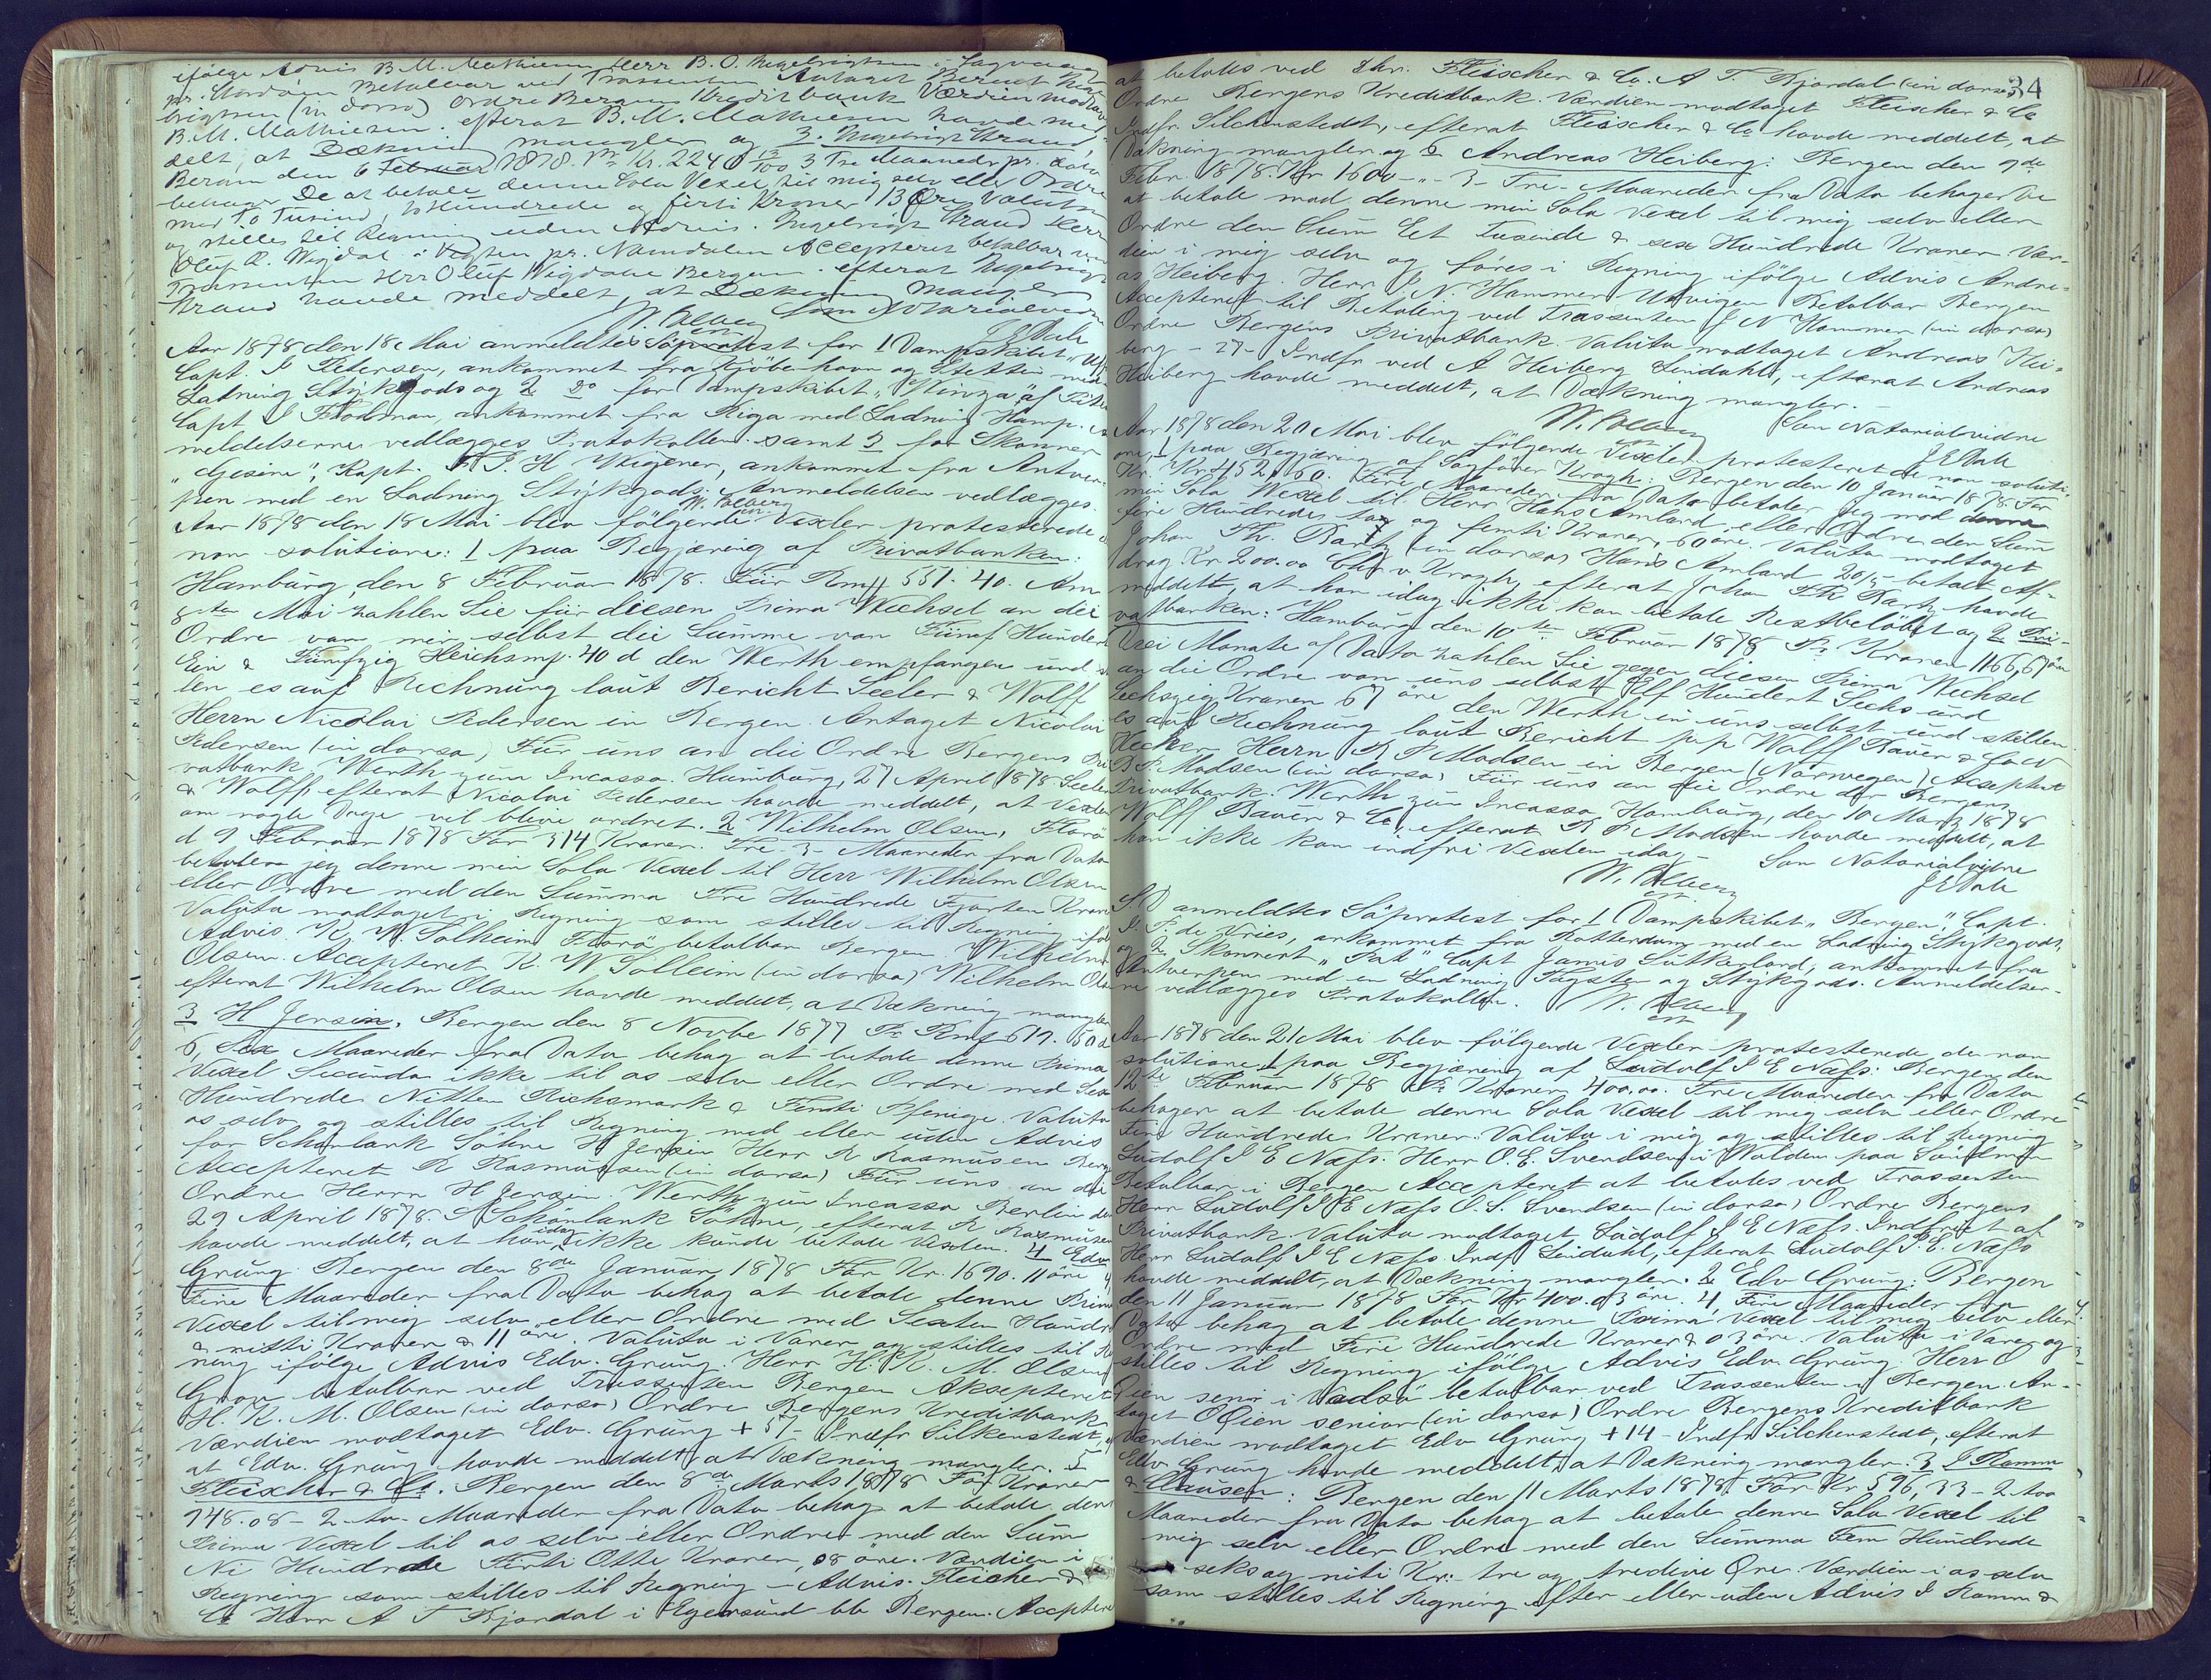 ifølge Advis B. M. Mathiesen Herr B. O. Ingebrigtsen i
pr. Betalbar ved Trassenten Antaget Berndt Inge-
brigtsen (in dorso) Ordre Bergens Kreditbank Værdien modtaget
B. M. Mathiesen. efterat B. M. Mathiesen havde med-
delt, at Dækning mangler og 3. Ingebrigt Straus:
Bergen den 6 Februar 1878. Pr. Kr. 2240 13/100 3 Tre Maaneder pr. dato
behager De at betale denne Sola Vexel til mig selv eller Ordre
med To Tusind, to Hundrede og førti Kroner 13 Øre Valuta
og stilles til Regning uden Advis. Ingebrigt Straus Herr
Oluf A. Wigdal i Vigten pr. Namdalen Accepteret betalbar ved
Trassenten Herr Oluf Wigdahl Bergen. efterat Ingebrigt
Straus havde meddelt, at Dækning mangler
W. Olberg Som Notarialvidne
J E Dale
Aar 1878 den 18 Mai anmeldtes Søprotest for 1 Dampskibet
Capt. J Petersen, ankommet fra Kjøbenhavn og Stettin med
Ladning Stykgods og 2 do for Dampskibet "Winga" af
Capt J Flodman, ankommet fra Riga med Ladning Hamp. An-
meldelserne vedlægges Protokollen. samt 3 for Skonner
"Gesine", Kapt. J. H Wigener, ankommet fra Antwer-
pen med en Ladning Stykgods. Anmeldelsen vedlægges.
W. Olberg
Aar 1878 den 18 Mai blev følgende Vexler protesterede de
non solutione: 1 paa Begjæring af Privatbanken:
Hamburg, den 8 Februar 1878. Für Rm 551. 40. Am
8ten Mai zahlen Sie für diesen Prima Wechsel an die
Ordre von mir selbst die Summe von Fünf Hundert
Ein & Fünfzig Reichsmp. 40 d den Werth empfangen und stel-
len es auf Rechnung laut Bericht Seeler & Wolff
Herrn Nicolai Pedersen in Bergen. Antaget Nicolai
Pedersen (in dorso) Für uns an die Ordre Bergens Pri-
vatbank. Werth zum Incasso. Hamburg, 27 April 1878 Seeler
& Wolff efterat Nicolai Pedersen havde meddelt, at Vexlen
om nogle Dage vil blive ordnet. 2 Wilhelm Olsen, Florø
d 9 Februar 1878 For 314 Kroner. Tre - 3 - Maaneder fra Dato
betaler jeg denne min Sola Vexel til Herr Wilhelm Olsen
eller Ordre med den Summa Tre Hundrede Fjorten Kroner
Valuta modtaget i Regning som stilles til Regning ifølge
Advis. K. W. Solheim Florø betalbar Bergen. Wilhelm
Olsen. Accepteret K. W Solheim (in dorso) Wilhelm Olsen
efterat Wilhelm Olsen havde meddelt, at Dækning mangler
3 H Jersin. Bergen den 8 Novbr 1877 Pr Rmf 619. 50 d
6, Sex Maaneder fra Dato behag at betale denne Prima
Vexel Secunda ikke til os selv eller Ordre med Sex
Hundrede Nitten Richsmark & Femti Pfenige. Valuta
os selv og stilles til Regning med eller uden Advis
for Schønlank Söhne H Jersin Herr R Rasmusen Bergen
Accepteret R Rasmussen (in dorso) Für uns an die
Ordre Herrn H Jersin. Werth zum Incasso Berlin den
29 April 1878. S Schönlank Söhne, efterat R Rasmusen
havde meddelt, at han idag ikke kunde betale Vexlen. 4 Edv
Grung. Bergen den 8de Januar 1878 For Kr. 1690. 11 øre 4,
Fire Maaneder fra Dato behag at betale denne Prima
Vexel til mig selv eller Ordre med Sexten Hundre
& nitti Kroner & 11 øre. Valuta i Varer og stilles til Reg-
ning ifølge Advis Edv. Grung. Herr H. K. M. Olsen
betalbar ved Trassenten Bergen Aksepteret
H. K. M. Olsen (in dorso) Ordre Bergens Kreditbank
Værdien modtaget Edv. Grung + 57 - Indfr Silkenstedt,
at Edv. Grung havde meddelt, at Dækning mangler. 5
Fleischer & Co. Bergen den 8de Marts 1878 For Kroner
948.08 - 2 to Maaneder fra Dato behag at betale denne
Prima Vexel til os selv eller Ordre med den Sum
Ni Hundrede Førti Otte Kroner, 08 øre. Værdien i
Regning som stilles til Regning - Advis. Fleischer &
Co Herr A T Bjordal i Egersund bb Bergen. Acceptere
34
at betales ved Hrr. Fleischer & Co. A T. Bjordal (in dorso)
Ordre Bergens Kreditbank. Værdien modtaget Fleischer & Co
Indfr. Silchenstedt, efterat Fleischer & Co havde meddelt, at
Dækning mangler og 6 Andreas Heiberg: Bergen den 9de
Febr. 1878. Kr 1600 - " - 3 - Tre - Maaneder fra Dato behager De
at betale mod denne min Sola Vexel til mig selv eller
Ordre den Sum Et Tusinde & sex Hundrede Kroner. Vær-
dien i mig selv og føres i Regning ifølge Advis Andre-
as Heiberg. Herr J. N. Hammer Utvigen Betalbar Bergen
Accepteret til Betaling ved Trassenten J N Hammer (in dorso)
Ordre Bergens Privatbank. Valuta modtaget Andreas Hei-
berg - 27 - Indfr ved A Heiberg Lindahl, efterat Andreas
Heiberg havde meddelt, at Dækning mangler. -
W. Olberg Som Notarialvidne
J E Dale
Aar 1878 den 20 Mai blev følgende Vexler protesteret de non soluti-
one, 1 paa Begjæring af Sagfører Kragh: Bergen den 10 Januar 1878. For
Kr. Kr 452,60. Fire Maaneder fra Dato betaler jeg mod denne
min Sola Wexel til Herr Hans Amland eller Ordre den Sum
fire Hundrede to og femti Kroner, 60 øre. Valuta modtaget
Johan Th. Bartz (in dorso) Hans Amland 20/5 betalt Af-
drag Kr 200.00 Chr v Kragh, efterat Johan Th. Bartz havde
meddelt, at han idag ikke kan betale Restbeløbet og 2 Pri-
vatbanken: Hamburg den 10ten Februar 1878 Pr Kronen 1166,67 öre
Drei Monate af Dato zahlen Sie gegen diesen Prima Wechsel
an die Ordre von uns selbst Elf Hundert Sechs und
Sechszig Kronen 67 öre den Werth in uns selbst und stellen
es auf Rechnung laut Bericht pp Wolff Bauer & Co
Hecker Herrn R P Madsen in Bergen (Norwegen) Acceptirt
R P. Madsen (in dorso) Für uns an die Ordre der Bergens
Privatbank. Werth zum Incasso Hamburg, den 10 März 1878
Wolff Bauer & Co, efterat R P Madsen havde meddelt, at
han ikke kan indfri Vexlen idag - Som Notarialvidne
W. Olberg J E Dale
S D anmeldtes Søprotest for 1 Dampskibet "Bergen", Capt.
P. de Vries, ankommet fra Rotterdam med en Ladning Stykgods,
og 2 Skonnert "Pat" Capt James Sutherland, ankommet fra
Antwerpen med en Ladning Tagsten og Stykgods. Anmeldelser-
ne vedlægges Protokollen. W. Olberg
Aar 1878 den 21 Mai blev følgende Vexler protesterede de non
solutione. 1 paa Begjæring af Ludolf J E Næfs: Bergen den
12te Februar 1878 Pr Kroner 400.00. Tre Maaneder fra Dato
behager at betale denne Sola Vexel til mig selv eller Ordre
Fire Hundrede Kroner. Valuta i mig og stilles til Regning
Ludolf J E Næfs. Herr O. E. Svendsen i Wolden paa Søndmør
Betalbar i Bergen Accepteret at betales ved Trassenten
Herr Ludolf J E Næfs O. E. Svendsen (in dorso) Ordre Bergens
Privatbank. Valuta modtaget Ludolf J E Næfs. Indfriet af
Herr Ludolf J E Næfs. Indf Lindahl, efterat Ludolf J. E. Næfs
havde meddelt, at Dækning mangler. 2 Edv Grung. Bergen
den 11 Januar 1878 For Kr 400.03 øre. 4, Fire Maaneder fra
Dato behag at betale denne Prima Vexel til mig selv eller
Ordre med Fire Hundrede Kroner & 03 øre. Valuta i Varer og
stilles til Regning ifølge Advis Edv. Grung Herr O
Qien senr i Vadsø betalbar ved Trassenten i Bergen. An-
taget O Qien senior (in dorso) Ordre Bergens Kreditbank
Værdien modtaget Edv Grung + 14 - Indfr Silchenstedt, efterat
Edv Grung havde meddelt, at Dækning mangler. 3 J Ramm
& Clausen: Bergen den 11 Marts 1878. For Kr 596,33 - 2 too
Maaneder fra Dato behag at betale denne Sola Vexel til
mig selv eller Ordre med den Summa Fem Hundrede
seks og niti Kr: tre og tredive Øre. Værdien i os selv
som stilles til Regning efter eller uden Advis J Ramm &